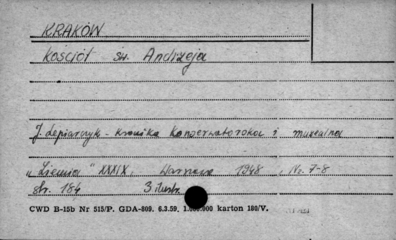 KRAKÓW
Kościół św. Andrzeja
J. Lepiarczyk - kronika konserwatorska i muzealna
"Ziemia" XXXIX, Warszawa 1948, Nr. 7-8
str. 184 3 ilustr.
CWD B-15b Nr 515/P. GDA-809. 6.3.59. 1.000.000 karton 180/V.